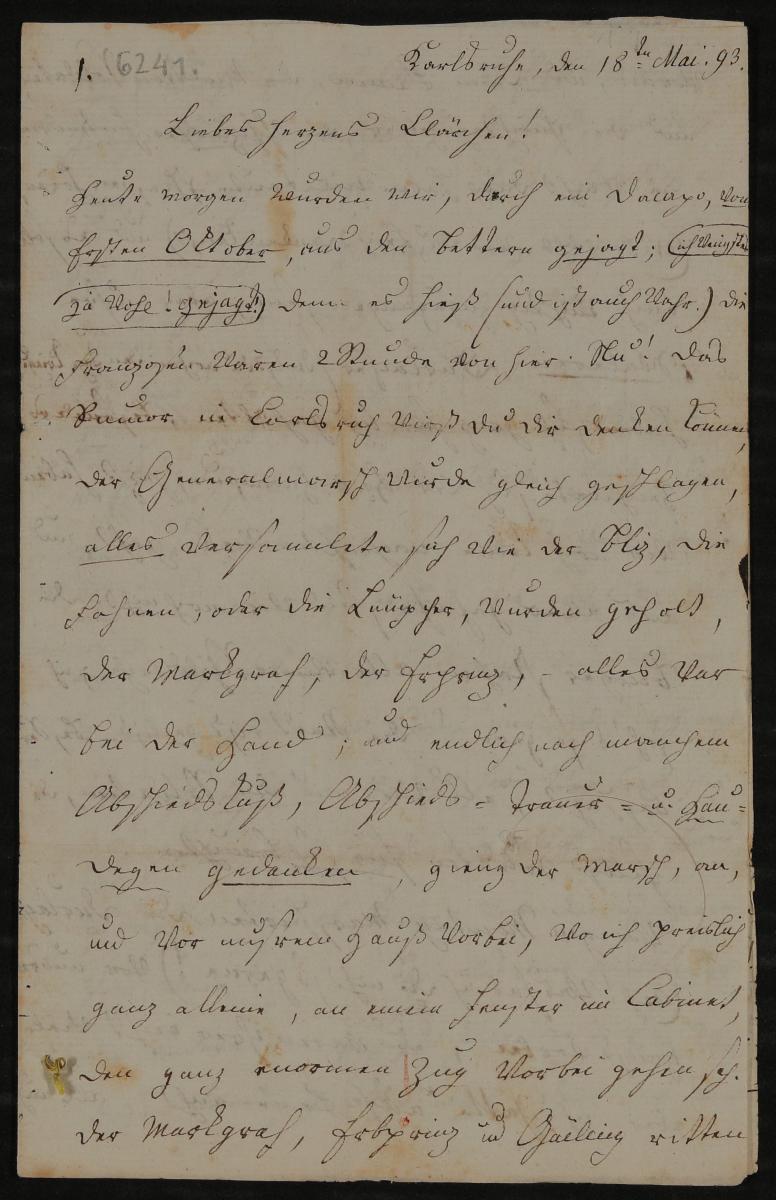 1. (6241.
Karlsruhe, den 18ten Mai. 93.
Liebes herzens Clärchen!
Heute morgen wurden wir, durch ein Dacapo, vom
Ersten Oktober, aus den bettern gejagt; (ich wenigstens
ja wohl! gejagt!) denn es hieß (und ist auch wahr.) die
Franzosen wären 2 Stunde von hier. Nu! das
Rumor in Carlsruh wirst du dir denken können,
der Generalmarsch wurde gleich geschlagen,
alles versamlete sich wie der bliz, die
Fahnen, oder die , wurden geholt,
der Markgraf, der Erprinz, - alles war
bei der Hand; und endlich nach manchem
Abschiedskuß, Abschieds- Trauer- u. Hau-
degen gedanken, gieng der Marsch, an,
und vor unsrem Hauß vorbei, wo ich preislich
ganz alleine, an einem fenster im Cabinet,
den ganz enormen Zug vorbei gehen sah.
der Markgraf, Erbprinz und Gailing ritten